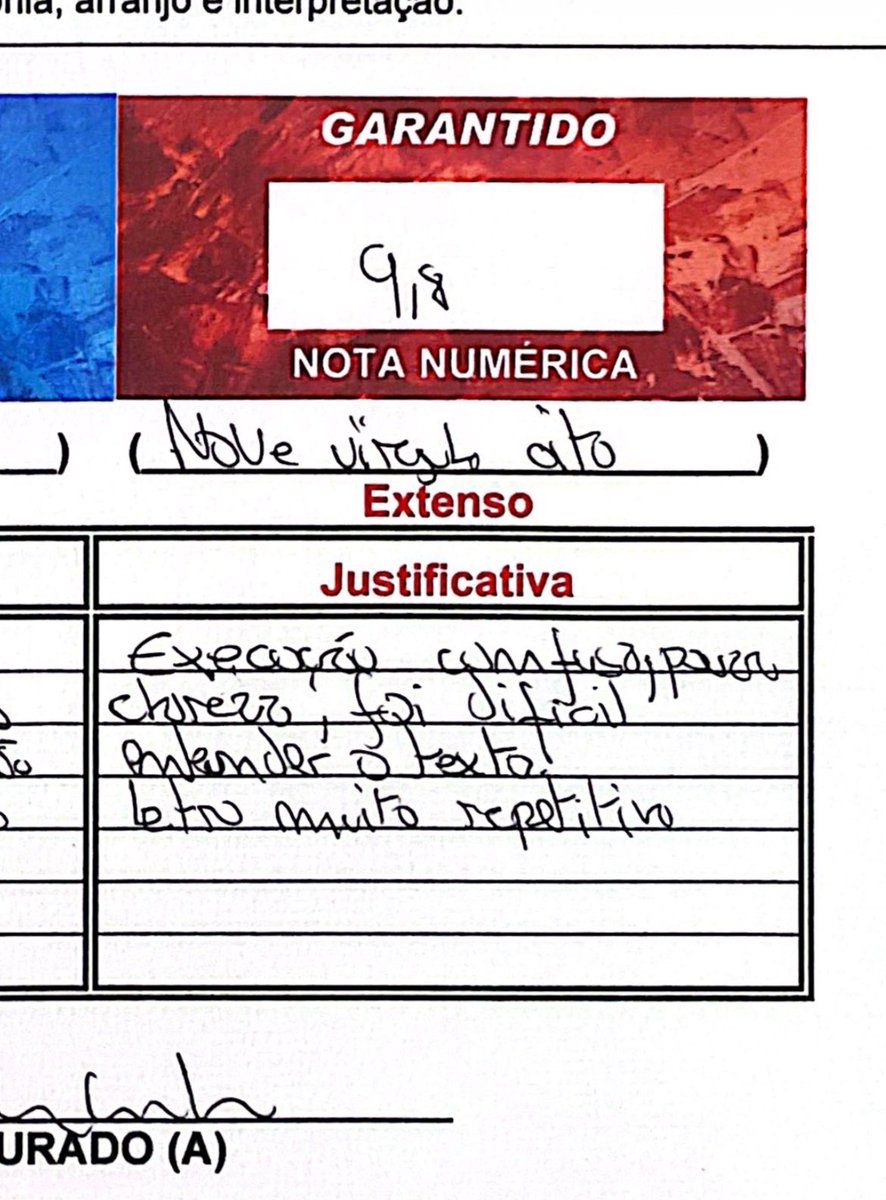 arranjo e interpretação.
GARANTIDO
9,8
NOTA NUMÉRICA
) (Nove vírgula oito)
Extenso
Justificativa
Execução confusa, pouca
clareza, foi difícil
entender o texto!
letra muito repetitiva
JURADO (A)